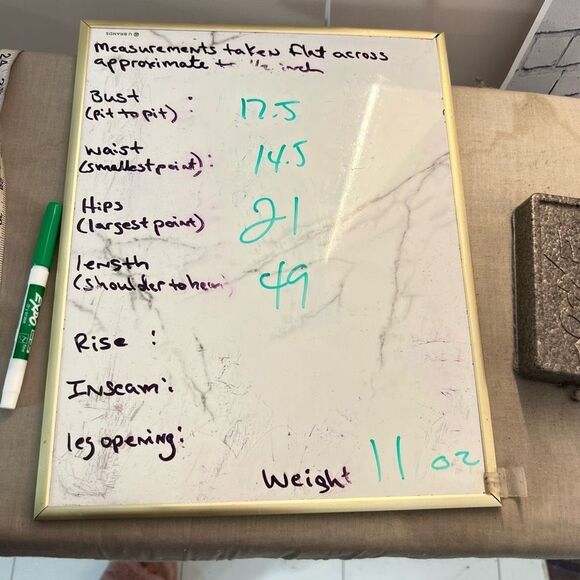 U BRANDS
measurements taken flat across
approximate + 1/2 inch
Bust : 17.5
(pit to pit)
waist 14.5
(smallest point):
Hips 21
(largest point)
length 49
(shoulder to hem)
Rise :
Inseam:
leg opening:
Weight 11 oz
EXPO
24